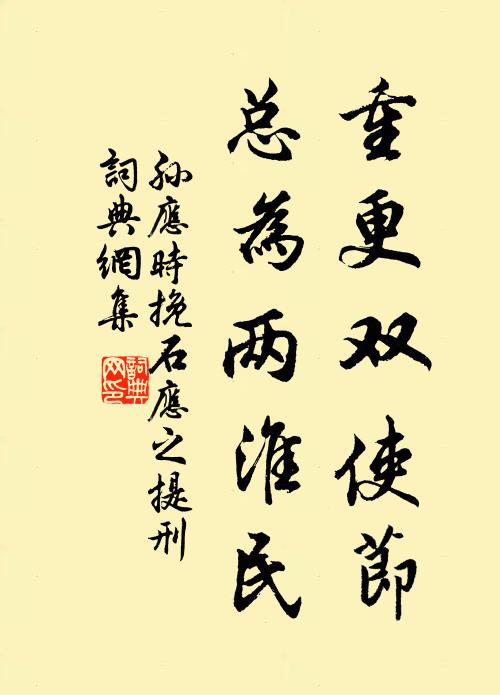 重更双使節
总為两淮民
孙應時挽石應之提刑
詞典網集
詞典網印